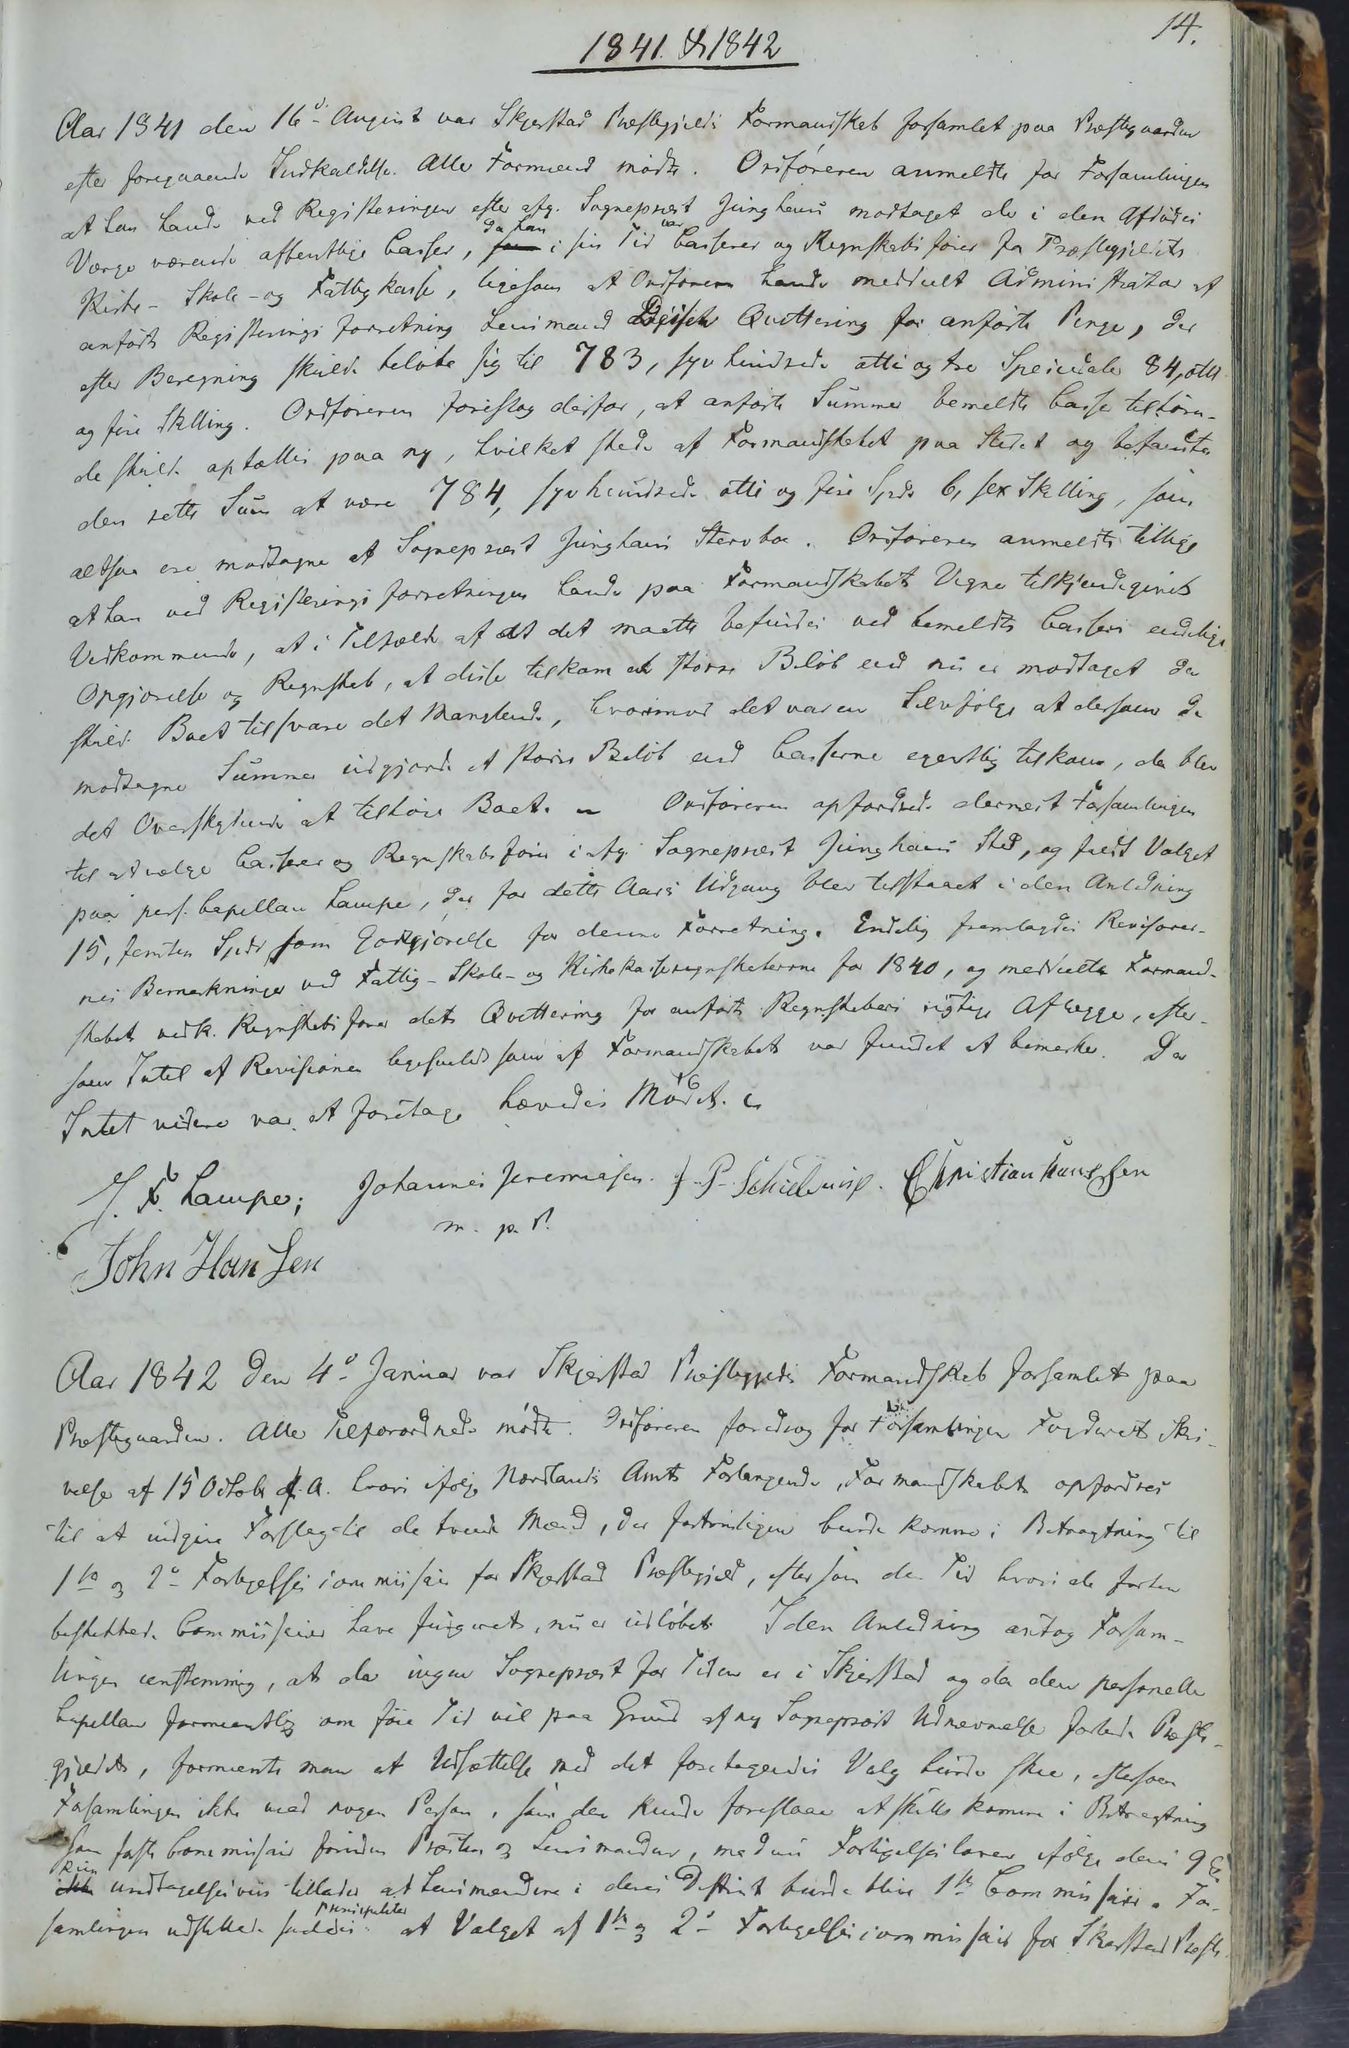 14.
1841 & 1842
Aar 1841 den 16de August var Skjerstad Præstegjelds Formandskab forsamlet paa Præstegaarden
efter foregaaende Indkaldelse. Alle Formænd mødte. Ordføreren anmeldte for Forsamlingen
at han havde ved Registeringen efter afg. Sognepræst Junghans modtaget de i den Afdødes
Værge værende offentlige Casser, da han i sin Tid var Casserer og Regnskabsfører for Præstegjeldets
Kirke- Skole- og Fattigkasse, ligesom at Ordføreren havde meddeelt Administrator af
anførte Registerings forretning Lensmand Quittering for anførte Penge, der
efter Beregning skulde beløbe sig til 783, syv hundrede otti og tre Speciedaler 84, otti
og fire Skilling. Ordføreren foreslog derfor, at anførte Summer bemeldte Casse tilhøren-
de skulde optælles paa ny, hvilket skede af Formandskabet paa Stedet og befandtes
den rette Sum at være 784, syv hundrede otti og fire Spdr 6, sex Skilling, som
altsaa ere modtagne af Sognepræst Junghans Stervboe. Ordføreren anmeldte tillige
at han ved Registerings forretningen havde paa Formandskabets Vegne tilkjendegivet
Vedkommende, at i Tilfælde af at det maatte befindes ved bemeldte Cassers endelige
Opgjørelse og Regnskab, at disse tilkom et større Beløb end nu er modtaget da
skulde Boet tilsvare det Manglende, hvorimod det var en Selvfølge at dersom de
modtagne Summer udgjorde et større Beløb end Casserne egentlig tilkom, da blev
det Overskydende at tilhøre Boet. Ordføreren opfordrede dernæst Forsamlingen
til at vælge Casserer og Regnskabsfører i afg. Sognepræst Junghans Sted, og faldt Valget
paa pers. Capellan Lampe, der for dette Aars Udgang blev tilstaaet i den Anledning
15, femten Spdr som Godtgjørelse for denne Forretning. Endelig fremlagdes Revisorer-
nes Bemærkninger ved Fattig- Skole- og Kirkekasseregnskaberne for 1840, og meddeelte Formand-
skabet vedk. Regnskabsfører dets Quittering for anførte Regnskabers rigtige Aflægge, efter-
som Intet af Revisionen ligesaalidt som af Formandskabet var fundet at bemærke. Da
Intet videre var at foretage hævedes Mødet.
J. F. Lampe; Johannes Jeremiasen. J. P. Christian Hanssen
m. p. P.
John Hansen
Aar 1842 den 4de Januar var Skjerstad Præstegjelds Formandskab forsamlet paa
Præstegaarden. Alle Tilforordnede mødte. Ordføreren foredrog for Forsamlingen Fogderiets Skri-
velse af 15 Octobr f. A. hvori ifølge Nordlands Amts Forlangende, Formandskabet opfordres
til at indgive Forslag til de tvende Mænd, der fortrinligen burde komme i Betragtning til
1ste og 2den Forligelsescommissair for Skjerstad Præstegjeld, eftersom den Tid hvori de forhen
beskikkede Commissairer have fungeret, nu er udløbet. I den Anledning antog Forsam-
lingen eenstemmig, at da ingen Sognepræst for Tiden er i Skjerstad og da den personelle
Capellan formeentlig om føie Tid vil paa Grund af ny Sognepræsts Udnævnelse forlade Præste-
gjeldet, formeente man at Udsættelse med det foretagendes Valg burde skee, eftersom
Forsamlingen ikke veed nogen Person, som den kunde foreslaae at skulle komme i Betragtning
som første Commissair foruden Præsten og Lensmanden, medens Forligelsesloven ifølge dens 9 §
kun undtagelsesviis tillader at Lensmændene i deres District burde blive 1ste Commissair. For-
samlingen udsatte saaledes at Valget af 1ste og 2den Forligelsescommissair for Skjerstad Præste-